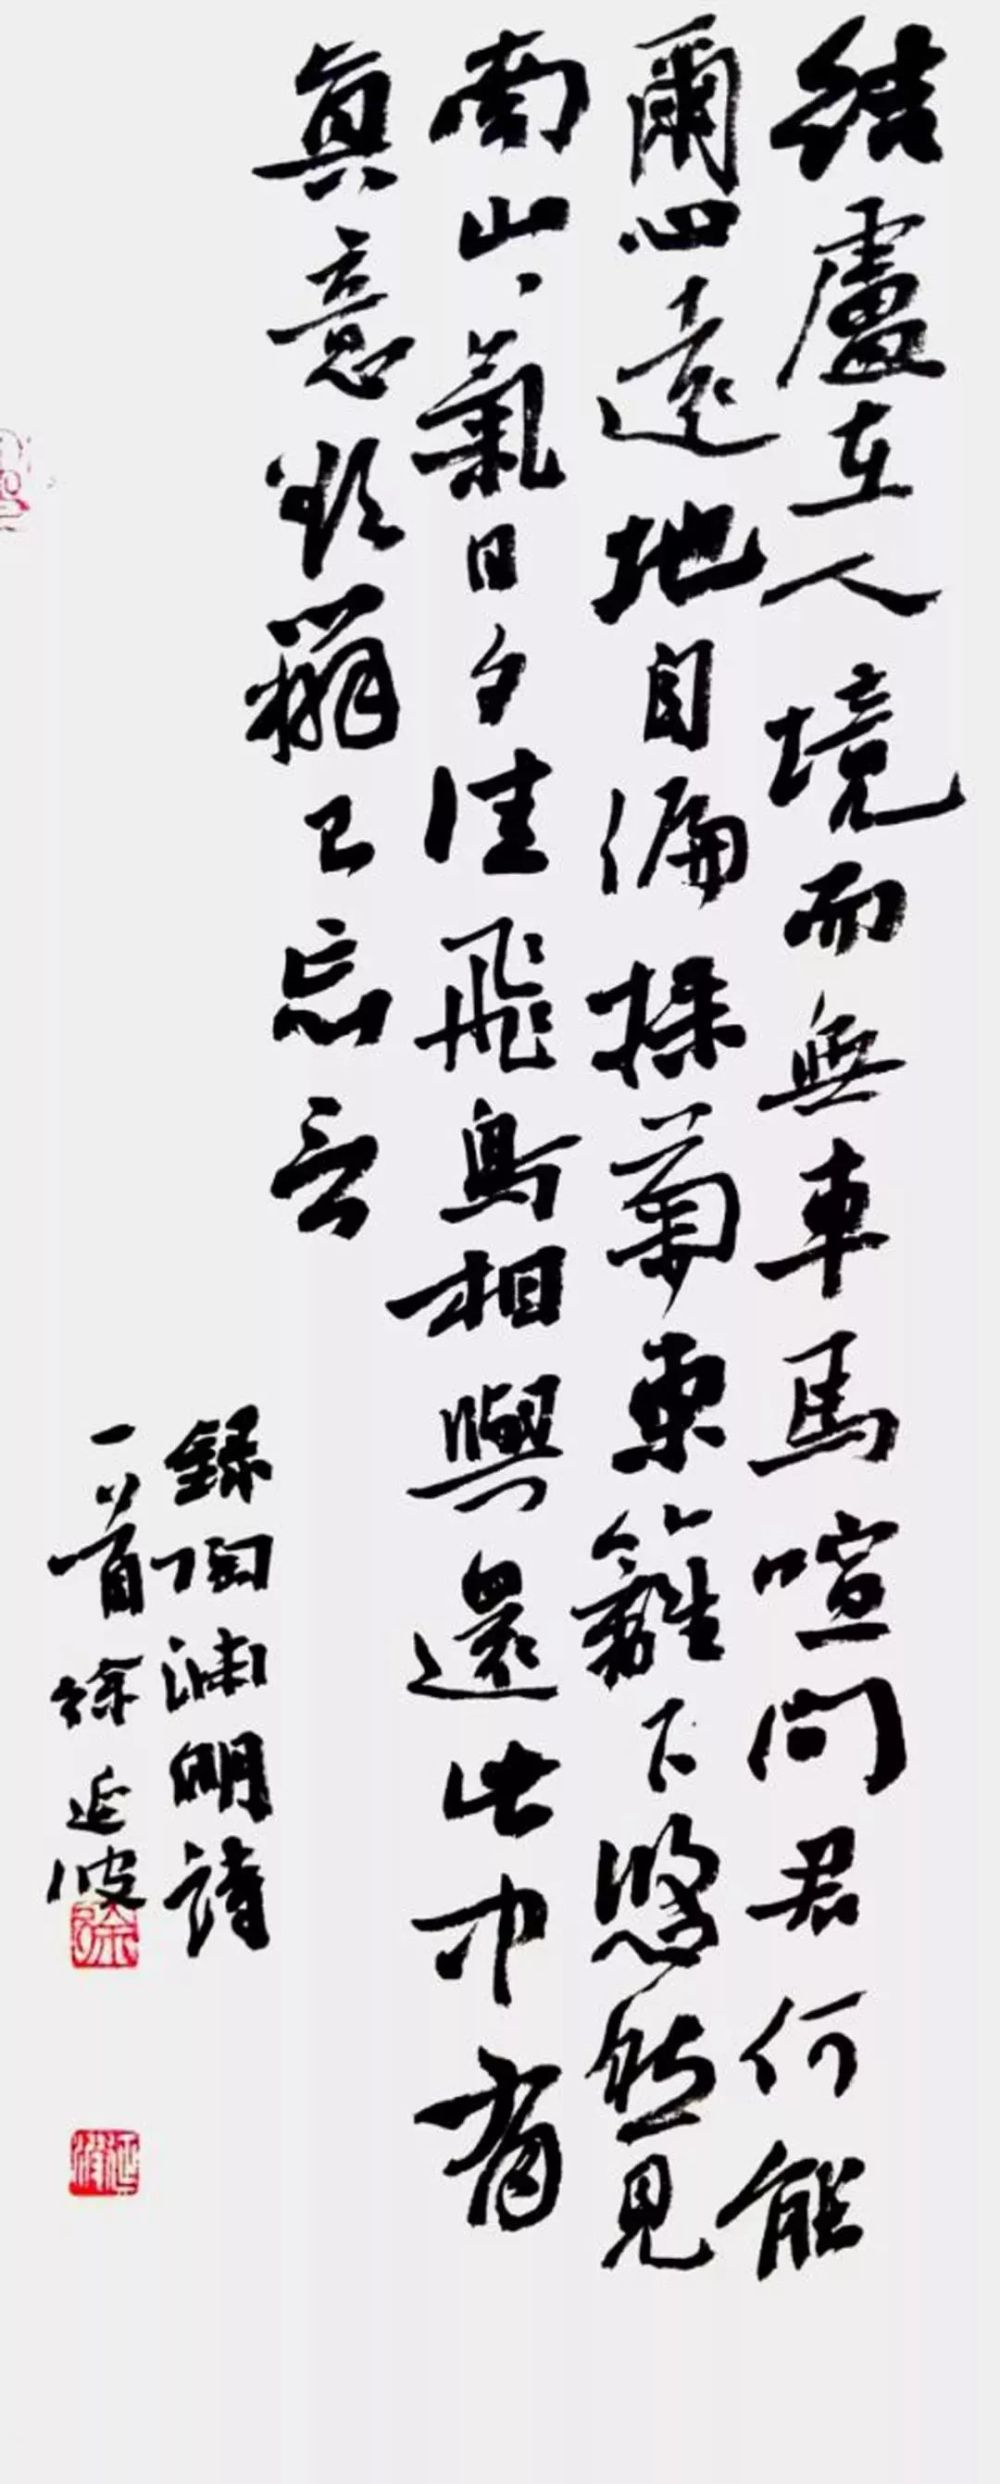 結廬在人境而無車馬喧問君何能
爾心遠地自偏採菊東籬下悠然見
南山山氣日夕佳飛鳥相與還此中有
真意欲辯已忘言
錄陶淵明詩
一首徐延波